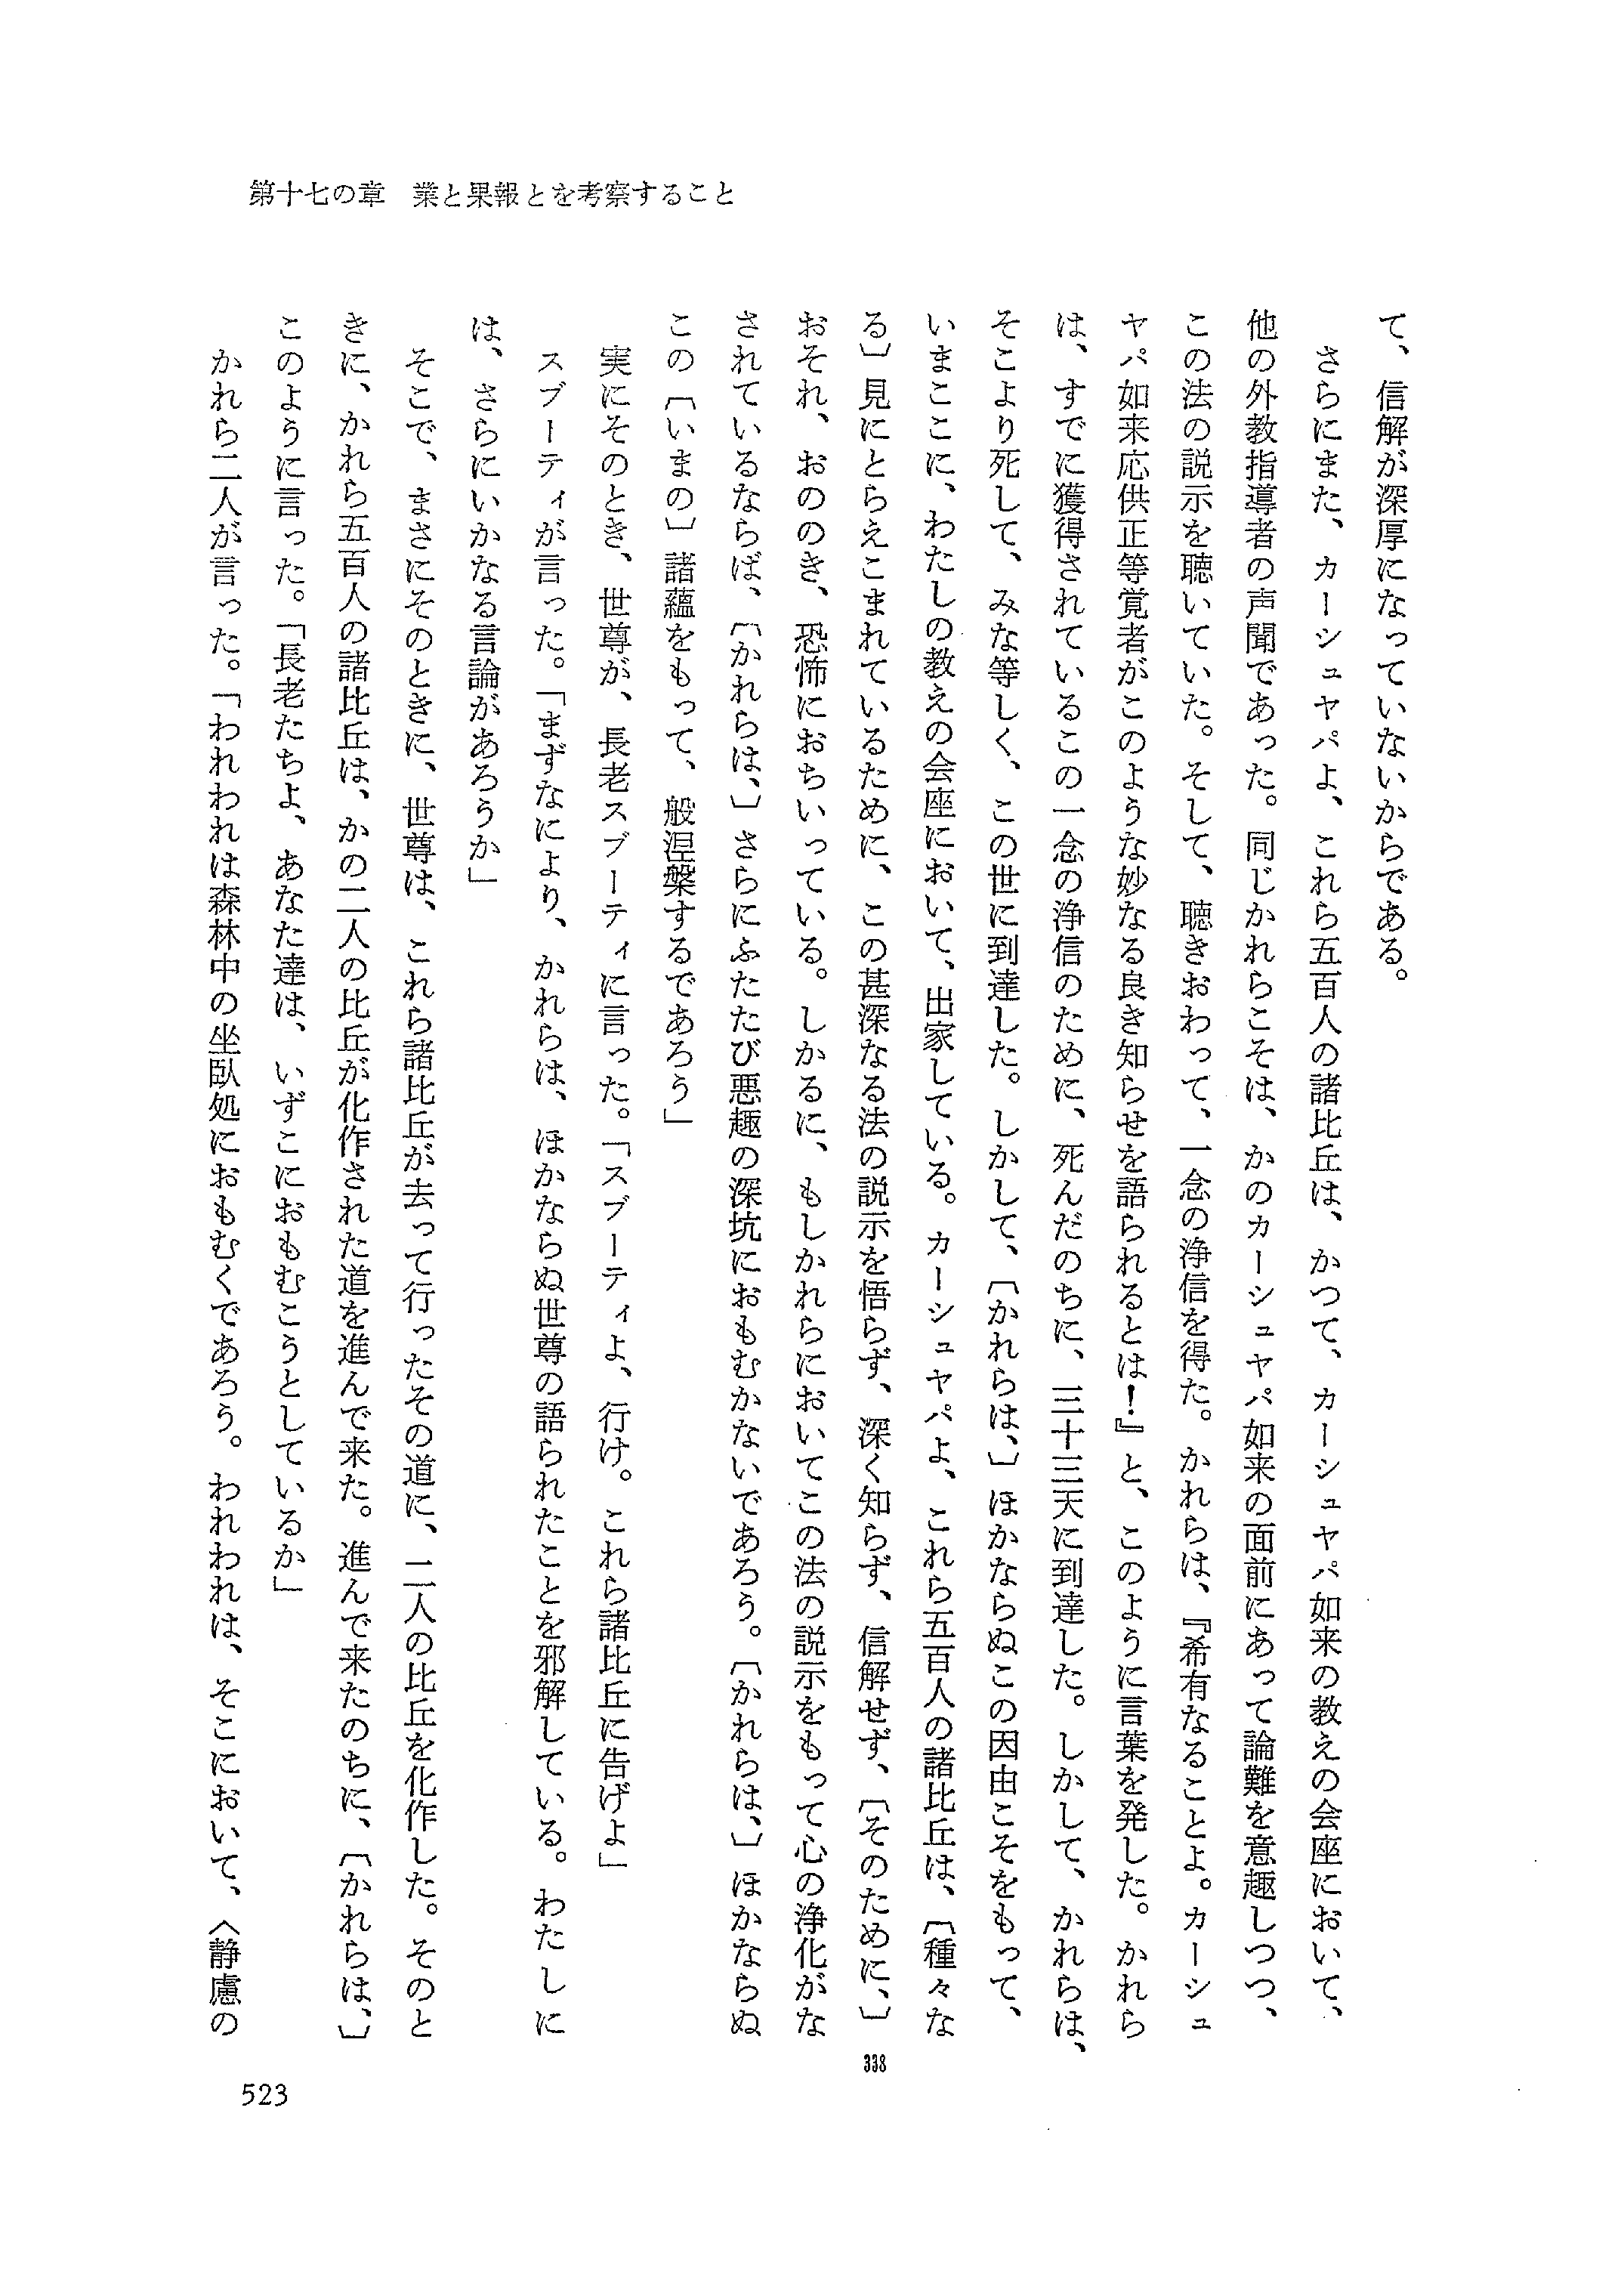 第十七の章　業と果報とを考察すること
て、信解が深厚になっていないからである。
さらにまた、カーシュヤパよ、これら五百人の諸比丘は、かつて、カーシュヤパ如来の教えの会座において、
他の外教指導者の声聞であった。同じかれらこそは、かのカーシュヤパ如来の面前にあって論難を意趣しつつ、
この法の説示を聴いていた。そして、聴きおわって、一念の浄信を得た。かれらは、『希有なることよ。カーシュ
ヤパ如来応供正等覚者がこのような妙なる良き知らせを語られるとは！』と、このように言葉を発した。かれら
は、すでに獲得されているこの一念の浄信のために、死んだのちに、三十三天に到達した。しかして、かれらは、
そこより死して、みな等しく、この世に到達した。しかして、〔かれらは、〕ほかならぬこの因由こそをもって、
いまここに、わたしの教えの会座において、出家している。カーシュヤパよ、これら五百人の諸比丘は、〔種々な
る〕見にとらえこまれているために、この甚深なる法の説示を悟らず、深く知らず、信解せず、〔そのために、〕
おそれ、おののき、恐怖におちいっている。しかるに、もしかれらにおいてこの法の説示をもって心の浄化がな
されているならば、〔かれらは、〕さらにふたたび悪趣の深坑におもむかないであろう。〔かれらは、〕ほかならぬ
この〔いまの〕諸蘊をもって、般涅槃するであろう」
実にそのとき、世尊が、長老スブーティに言った。「スブーティよ、行け。これら諸比丘に告げよ」
スブーティが言った。「まずなにより、かれらは、ほかならぬ世尊の語られたことを邪解している。わたしに
は、さらにいかなる言論があろうか」
そこで、まさにそのときに、世尊は、これら諸比丘が去って行ったその道に、二人の比丘を化作した。そのと
きに、かれら五百人の諸比丘は、かの二人の比丘が化作された道を進んで来た。進んで来たのちに、〔かれらは、〕
このように言った。「長老たちよ、あなた達は、いずこにおもむこうとしているか」
かれら二人が言った。「われわれは森林中の坐臥処におもむくであろう。われわれは、そこにおいて、〈静慮の
338
523